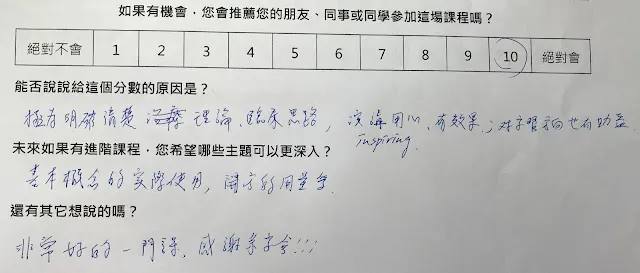 如果有機會，您會推薦您的朋友、同事或同學參加這場課程嗎？
絕對不會 1 2 3 4 5 6 7 8 9 10 絕對會
能否說說給這個分數的原因是？
極有明確清楚 理論、臨床思路，演講用心、有效果；對學習方向也有助益
inspiring.
未來如果有進階課程，您希望哪些主題可以更深入？
基本概念的實際使用，開方的用量等
還有其它想說的嗎？
非常好的一門課，感謝！！！